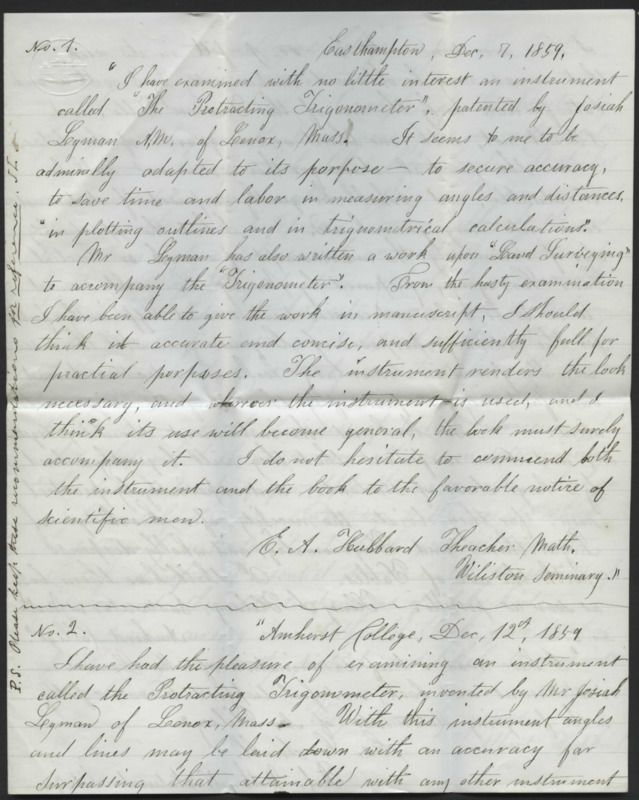 No. 1. Easthampton, Dec. 7, 1859.
"I have examined with no little interest an instrument
called "The Protracting Trigonometer", patented by Josiah
Lyman A.M. of Lenox, Mass. It seems to me to be
admirally adapted to its porpose — to secure accuracy,
to save time and labor in measuring angles and distances,
"in plotting outlines and in trigonometrical calculations".
Mr Lyman has also written a work upon "Land Surveying"
to accompany the "Trigonometer". From the hasty examination
I have been able to give the work in manuscript, I should
think it accurate and concise, and sufficiently full for
practial porposes. The instrument renders the book
necessary, and wherever the instrument is used, and I
think its use will become general, the book must surely
accompany it. I do not hesitate to commend both
the instrument and the book to the favorable notice of
scientific men.
E. A. Hubbard Theacher Math.
Wiliston Seminary."
No. 2. "Amherst College, Dec, 12th, 1859
I have had the pleasure of examining an instrument
called the Protracting Trigonometer, invented by Mr Josiah
Lyman of Lenox, Mass. With this instrument angles
and lines may be laid down with an accuracy far
surpassing that attainable with any other instrument
P.S. Please keep these recommendations for reference.